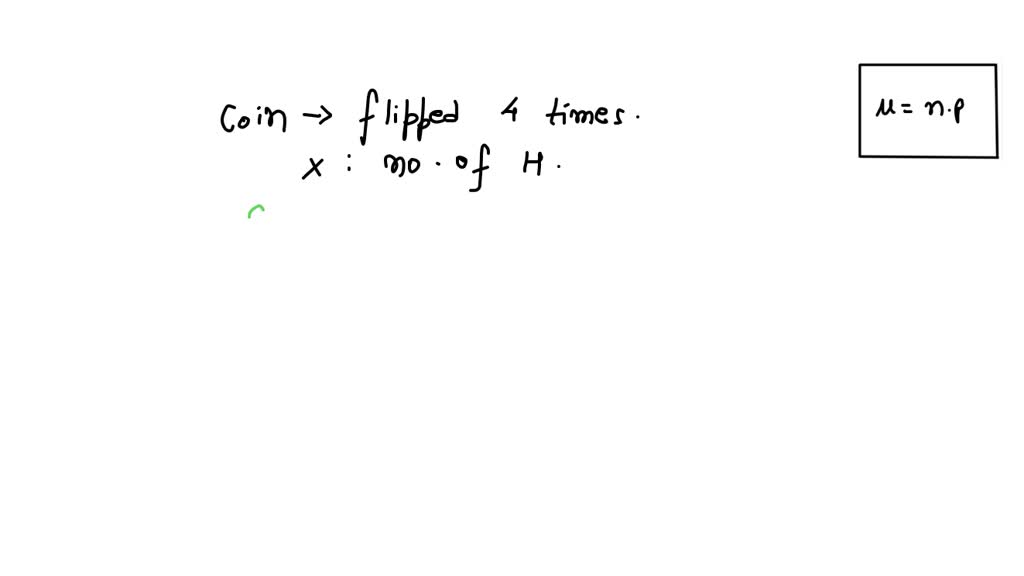 Coin → flipped 4 times.
X : no. of H.
μ = n.p